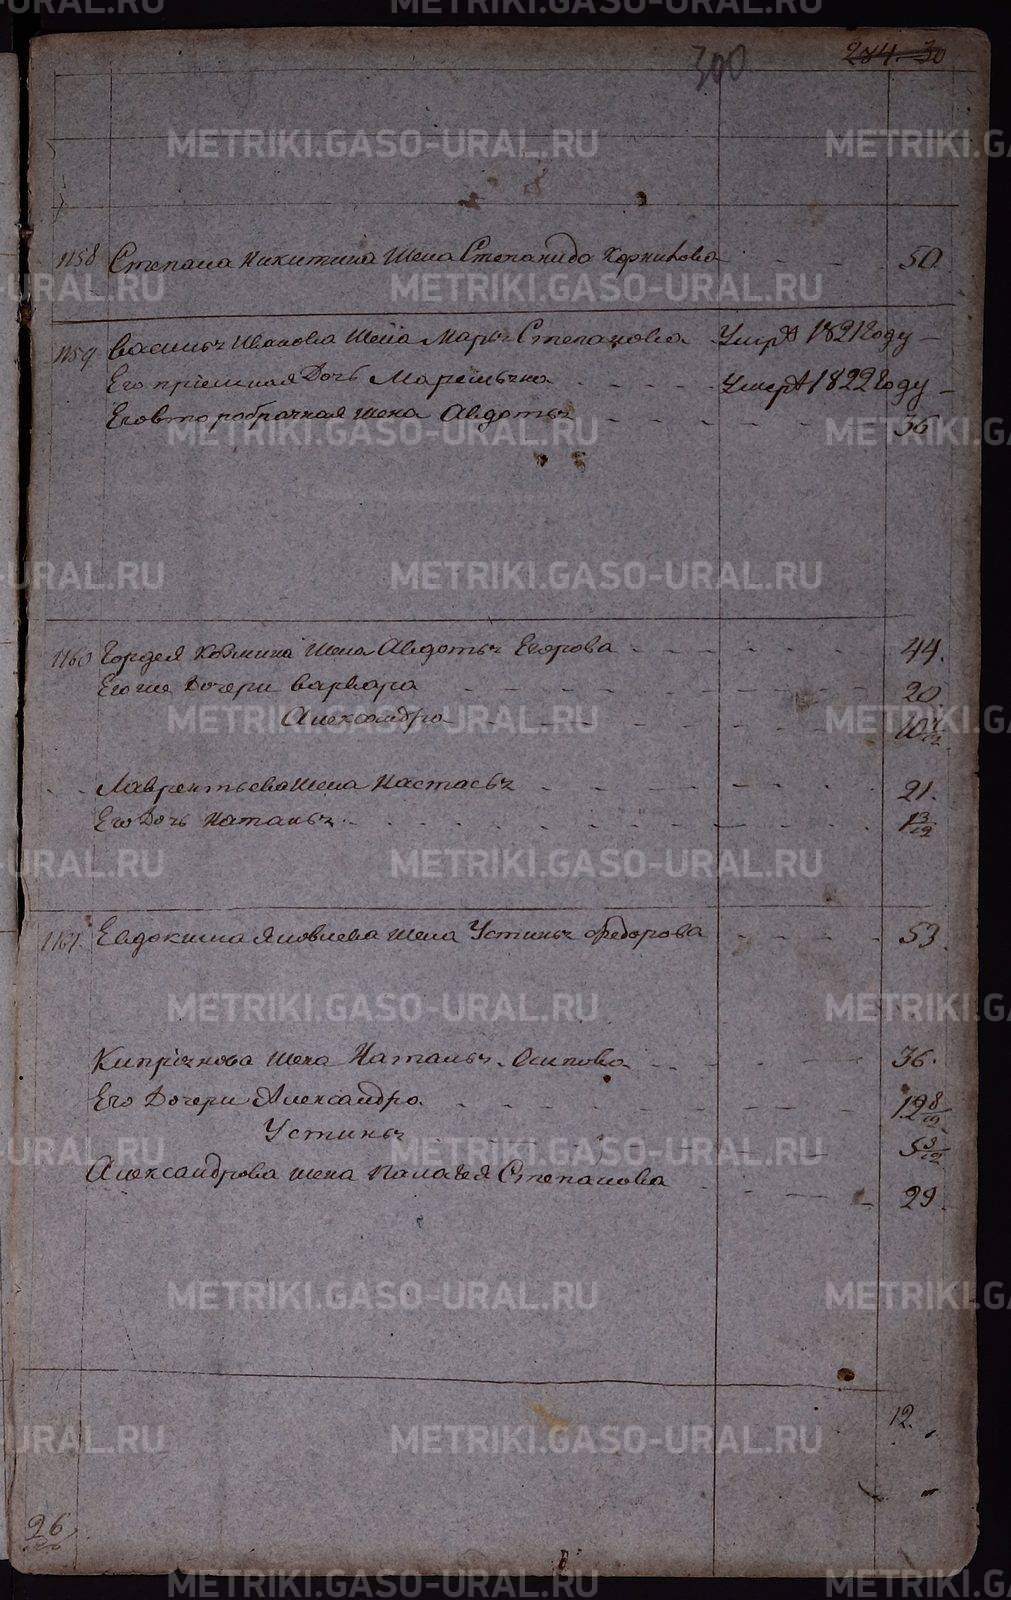 300
274. 30
1158 Степана Никитина жена Степанида Корнилова 50.
1159 Василья Иванова жена Марья Степановa Умрѣ 1821 Году
Его приемная Дочь Маремьяна Умерѣ 1822 Году
Его второбрачная жена Авдотья 36
1160 Гордея Козмина жена Авдотья Егорова 44.
Его же Дочери Варвара 20
Александра
Лаврентьева жена Настасья 21.
Его Дочь Наталья 1 3/12
1161. Евдокима Яковлева жена Устинья Федорова 53.
Кипріянова жена Наталья Осипова 36.
Его Дочери Александра 12 8/12
Устинья 5 3/12
Александрова жена Палагея Степанова 29.
12.
26
METRIKI.GASO-URAL.RU